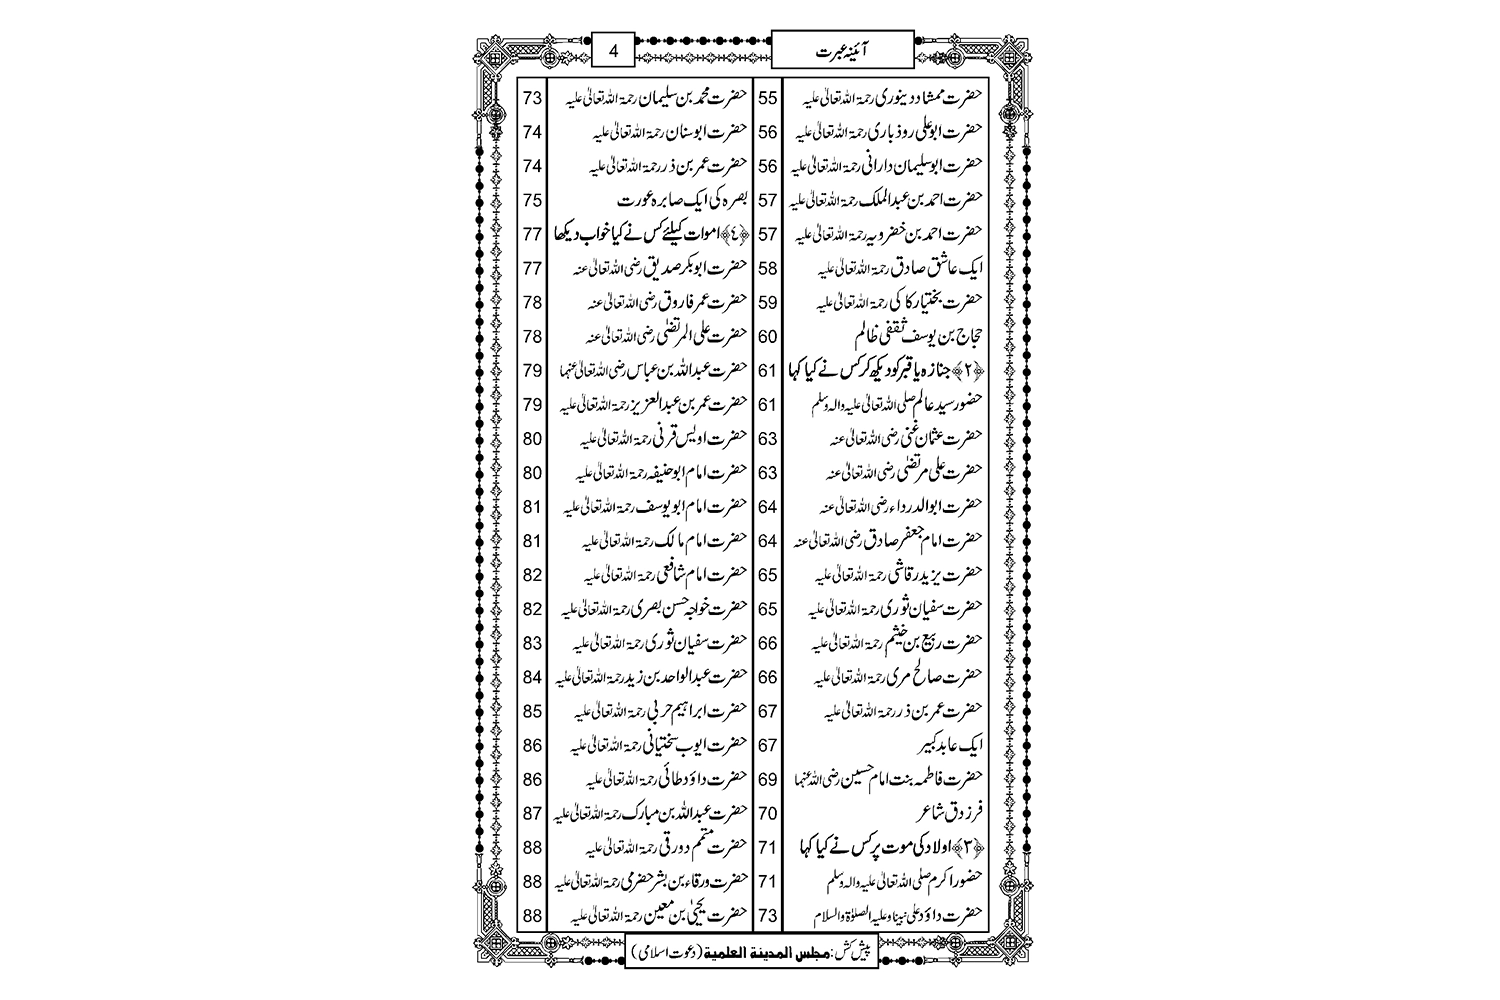 آئینۂ عبرت
4
حضرت ممشاد دینوری رحمۃ اللہ تعالیٰ علیہ 55
حضرت ابو علی روذباری رحمۃ اللہ تعالیٰ علیہ 56
حضرت ابو سلیمان دارانی رحمۃ اللہ تعالیٰ علیہ 56
حضرت احمد بن عبدالملک رحمۃ اللہ تعالیٰ علیہ 57
حضرت احمد بن خضرویہ رحمۃ اللہ تعالیٰ علیہ 57
ایک عاشق صادق رحمۃ اللہ تعالیٰ علیہ 58
حضرت بختیار کاکی رحمۃ اللہ تعالیٰ علیہ 59
حجاج بن یوسف ثقفی ظالم 60
﴿۲﴾ جنازہ یا قبر کو دیکھ کر کس نے کیا کہا 61
حضور سید عالم صلی اللہ تعالیٰ علیہ والہ وسلم 61
حضرت عثمان غنی رضی اللہ تعالیٰ عنہ 63
حضرت علی مرتضیٰ رضی اللہ تعالیٰ عنہ 63
حضرت ابوالدرداء رضی اللہ تعالیٰ عنہ 64
حضرت امام جعفر صادق رضی اللہ تعالیٰ عنہ 64
حضرت یزید رقاشی رحمۃ اللہ تعالیٰ علیہ 65
حضرت سفیان ثوری رحمۃ اللہ تعالیٰ علیہ 65
حضرت ربیع بن خیثم رحمۃ اللہ تعالیٰ علیہ 66
حضرت صالح مری رحمۃ اللہ تعالیٰ علیہ 66
حضرت عمر بن ذر رحمۃ اللہ تعالیٰ علیہ 67
ایک عابد کبیر 67
حضرت فاطمہ بنت امام حسین رضی اللہ عنہا 69
فرزدق شاعر 70
﴿۳﴾ اولاد کی موت پر کس نے کیا کہا 71
حضور اکرم صلی اللہ تعالیٰ علیہ والہ وسلم 71
حضرت داؤد علی نبینا وعلیہ الصلوٰۃ والسلام 73
حضرت محمد بن سلیمان رحمۃ اللہ تعالیٰ علیہ 73
حضرت ابو سنان رحمۃ اللہ تعالیٰ علیہ 74
حضرت عمر بن ذر رحمۃ اللہ تعالیٰ علیہ 74
بصرہ کی ایک صابرہ عورت 75
﴿٤﴾ اموات کیلئے کس نے کیا خواب دیکھا 77
حضرت ابوبکر صدیق رضی اللہ تعالیٰ عنہ 77
حضرت عمر فاروق رضی اللہ تعالیٰ عنہ 78
حضرت علی المرتضیٰ رضی اللہ تعالیٰ عنہ 78
حضرت عبداللہ بن عباس رضی اللہ تعالیٰ عنہما 79
حضرت عمر بن عبدالعزیز رحمۃ اللہ تعالیٰ علیہ 79
حضرت اویس قرنی رحمۃ اللہ تعالیٰ علیہ 80
حضرت امام ابو حنیفہ رحمۃ اللہ تعالیٰ علیہ 80
حضرت امام ابو یوسف رحمۃ اللہ تعالیٰ علیہ 81
حضرت امام مالک رحمۃ اللہ تعالیٰ علیہ 81
حضرت امام شافعی رحمۃ اللہ تعالیٰ علیہ 82
حضرت خواجہ حسن بصری رحمۃ اللہ تعالیٰ علیہ 82
حضرت سفیان ثوری رحمۃ اللہ تعالیٰ علیہ 83
حضرت عبدالواحد بن زید رحمۃ اللہ تعالیٰ علیہ 84
حضرت ابراہیم حربی رحمۃ اللہ تعالیٰ علیہ 85
حضرت ایوب سختیانی رحمۃ اللہ تعالیٰ علیہ 86
حضرت داؤد طائی رحمۃ اللہ تعالیٰ علیہ 86
حضرت عبداللہ بن مبارک رحمۃ اللہ تعالیٰ علیہ 87
حضرت متمم دورقی رحمۃ اللہ تعالیٰ علیہ 88
حضرت ورقاء بن بشر حضرمی رحمۃ اللہ تعالیٰ علیہ 88
حضرت یحییٰ بن معین رحمۃ اللہ تعالیٰ علیہ 88
پیش کش: مجلس المدینة العلمیة (دعوت اسلامی)